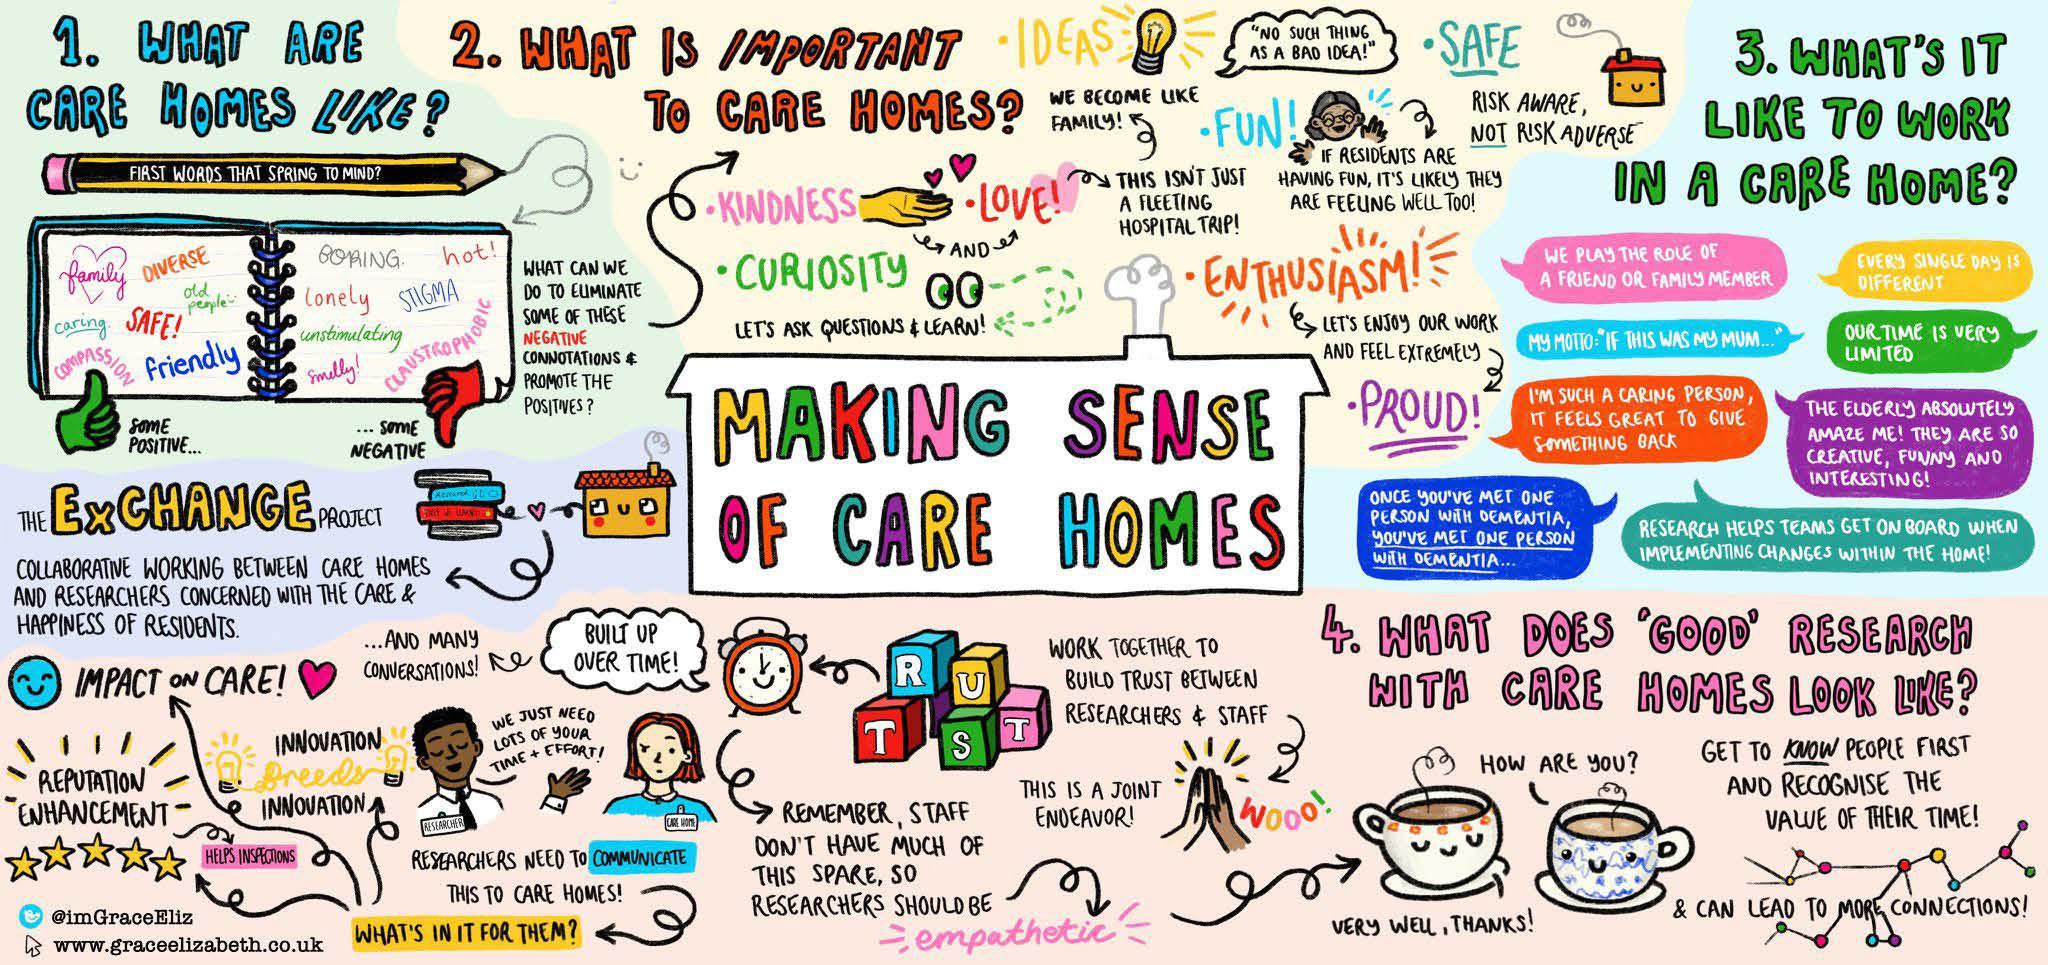 1. WHAT ARE
CARE HOMES LIKE?
FIRST WORDS THAT SPRING TO MIND?
family
DIVERSE
old
people
caring.
SAFE!
COMPASSION
friendly
BORING.
hot!
lonely
STIGMA
unstimulating
smelly!
CLAUSTROPHOBIC
SOME
POSITIVE...
... SOME
NEGATIVE
WHAT CAN WE
DO TO ELIMINATE
SOME OF THESE
NEGATIVE
CONNOTATIONS &
PROMOTE THE
POSITIVES?
2. WHAT IS IMPORTANT
TO CARE HOMES?
• IDEAS
"NO SUCH THING
AS A BAD IDEA!"
• SAFE
RISK AWARE,
NOT RISK ADVERSE
WE BECOME LIKE
FAMILY!
• FUN!
IF RESIDENTS ARE
HAVING FUN, IT'S LIKELY THEY
ARE FEELING WELL TOO!
• KINDNESS
AND
• LOVE!
THIS ISN'T JUST
A FLEETING
HOSPITAL TRIP!
• CURIOSITY
LET'S ASK QUESTIONS & LEARN!
• ENTHUSIASM!
LET'S ENJOY OUR WORK
AND FEEL EXTREMELY
• PROUD!
3. WHAT'S IT
LIKE TO WORK
IN A CARE HOME?
WE PLAY THE ROLE OF
A FRIEND OR FAMILY MEMBER
EVERY SINGLE DAY IS
DIFFERENT
MY MOTTO: "IF THIS WAS MY MUM..."
OUR TIME IS VERY
LIMITED
I'M SUCH A CARING PERSON,
IT FEELS GREAT TO GIVE
SOMETHING BACK
THE ELDERLY ABSOLUTELY
AMAZE ME! THEY ARE SO
CREATIVE, FUNNY AND
INTERESTING!
ONCE YOU'VE MET ONE
PERSON WITH DEMENTIA,
YOU'VE MET ONE PERSON
WITH DEMENTIA...
RESEARCH HELPS TEAMS GET ON BOARD WHEN
IMPLEMENTING CHANGES WITHIN THE HOME!
MAKING SENSE
OF CARE HOMES
THE ExCHANGE PROJECT
Research
COLLABORATIVE WORKING BETWEEN CARE HOMES
AND RESEARCHERS CONCERNED WITH THE CARE &
HAPPINESS OF RESIDENTS.
4. WHAT DOES 'GOOD' RESEARCH
WITH CARE HOMES LOOK LIKE?
GET TO KNOW PEOPLE FIRST
AND RECOGNISE THE
VALUE OF THEIR TIME!
& CAN LEAD TO MORE CONNECTIONS!
HOW ARE YOU?
VERY WELL, THANKS!
WORK TOGETHER TO
BUILD TRUST BETWEEN
RESEARCHERS & STAFF
THIS IS A JOINT
ENDEAVOR!
WOOO!
TRUST
BUILT UP
OVER TIME!
...AND MANY
CONVERSATIONS!
REMEMBER, STAFF
DON'T HAVE MUCH OF
THIS SPARE, SO
RESEARCHERS SHOULD BE
empathetic
WE JUST NEED
LOTS OF YOUR
TIME + EFFORT!
RESEARCHER
CARE HOME
RESEARCHERS NEED TO COMMUNICATE
THIS TO CARE HOMES!
WHAT'S IN IT FOR THEM?
IMPACT ON CARE!
INNOVATION
Breeds
INNOVATION
REPUTATION
ENHANCEMENT
HELPS INSPECTIONS
@imGraceEliz
www.graceelizabeth.co.uk